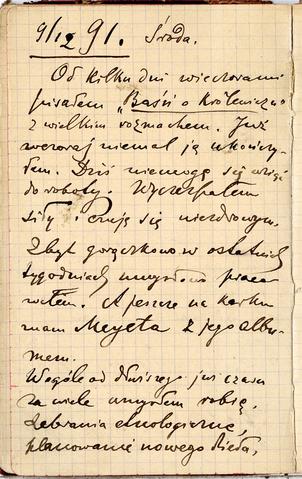 9/12 91. Środa.
Od kilku dni wieczorami
pisałem „Baśń o Królewiczu"
z wielkim rozmachem. Już
wczoraj niemal ją ukończy-
łem. Dziś niemogę się wziąć
do roboty. Wyczerpałem
siły i czuję się niezdrowym.
Zbyt gorączkowo w ostatnich
tygodniach umysłowo praco
wałem. A jeszcze na karku
mam Meyeta z jego albu-
mem.
Wogóle od dłuższego już czasu
za wiele umysłem robię.
Zebrania etnologiczne,
planowanie nowego dzieła,